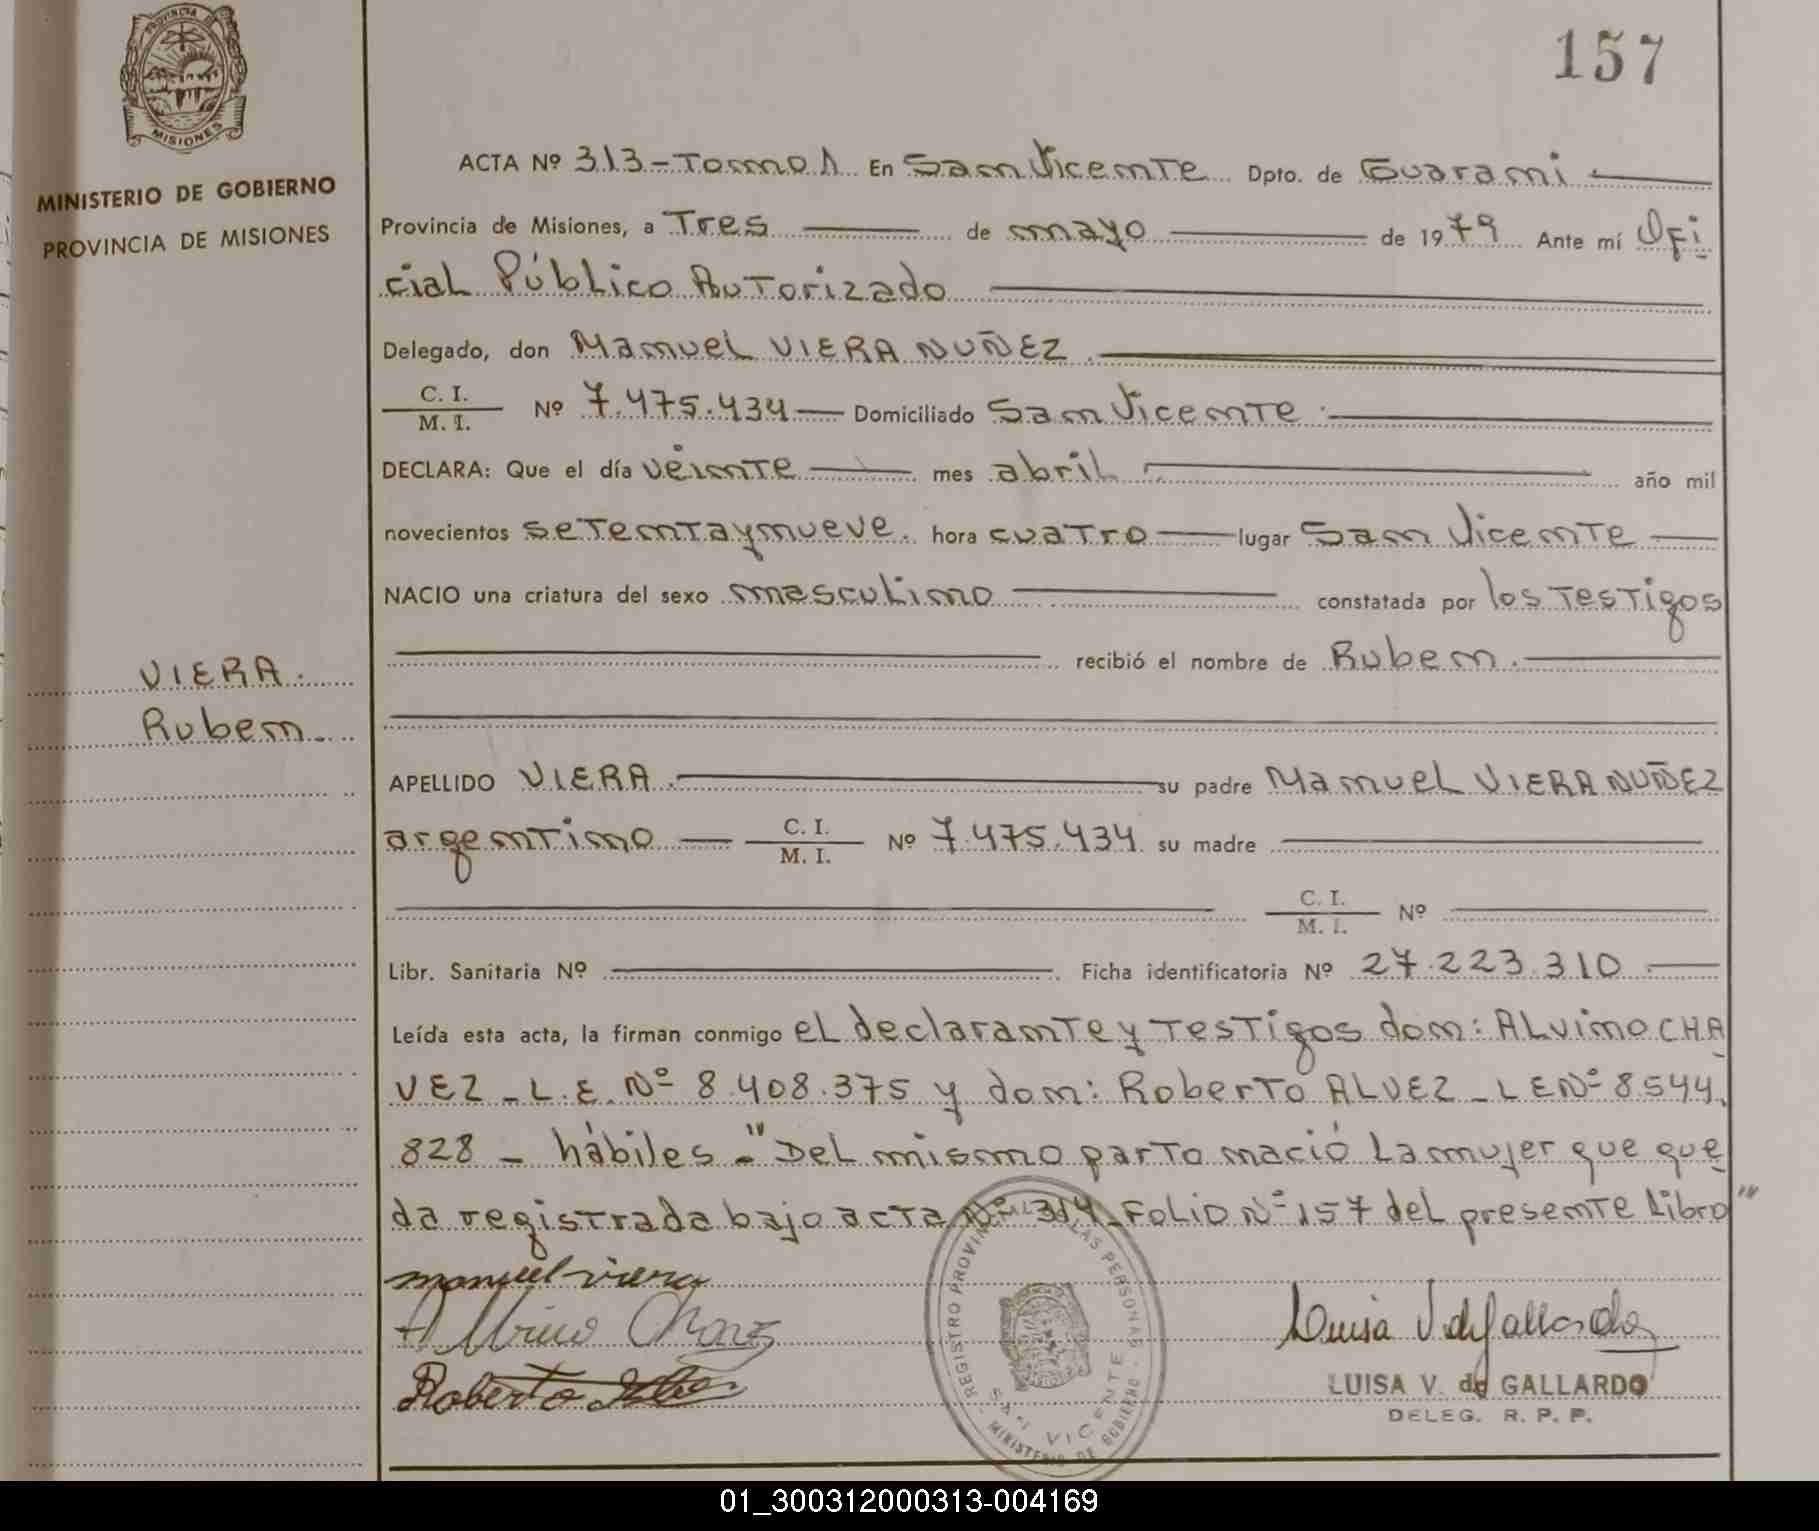 157
PROVINCIA D
MISIONES
MINISTERIO DE GOBIERNO
PROVINCIA DE MISIONES
ACTA Nº 313-Tomo 1 En San Vicente Dpto. de Guarani
Provincia de Misiones, a Tres de mayo de 1979 Ante mí Ofi
cial Público Autorizado
Delegado, don Manuel VIERA NUÑEZ
C. I.
M. I. Nº 7.475.434 Domiciliado San Vicente
DECLARA: Que el día veinte mes abril año mil
novecientos setenta y nueve. hora cuatro lugar San Vicente
NACIO una criatura del sexo masculino constatada por los Testigos
recibió el nombre de Ruben.
VIERA.
Ruben.
APELLIDO VIERA. su padre Manuel VIERA NUÑEZ
argentino C. I.
M. I. Nº 7.475.434 su madre
C. I.
M. I. Nº
Libr. Sanitaria Nº Ficha identificatoria Nº 27.223.310
Leída esta acta, la firman conmigo el declarante y Testigos don: ALvino CHA
VEZ - L.E. Nº 8.408.375 y don: Roberto ALVEZ - LE Nº 8.544.
828 - hábiles - "Del mismo parto nació La mujer que que
da registrada bajo acta Nº 314 - FOLIO Nº 157 del presente Libro"
manuel viera
Alvino Chavez
Roberto
Luisa V de Gallardo
LUISA V. de GALLARDO
DELEG. R. P. P.
REGISTRO PROVINCIAL LAS PERSONAS
SAN VICENTE
MINISTERIO DE GOBIERNO
01_300312000313-004169